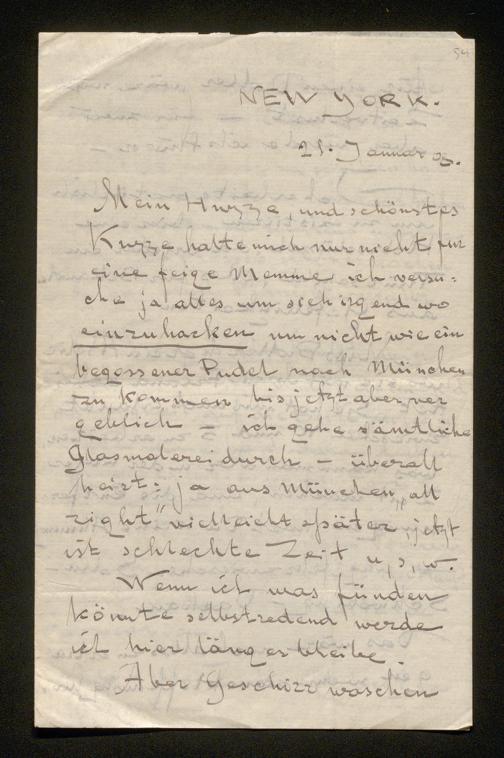 54
NEW YORK.
21. Januar 03.
Mein Huzze, und schönstes
Kuzze halte mich nur nicht für
eine feige Memme ich versu-
che ja alles um sich irgend wo
einzuhacken um nicht wie ein
begossener Pudel nach München
zu kommen bis jetzt aber ver
geblich – ich gehe sämtliche
Glasmalerei durch – überall
heist: ja aus München „all
right" vielleicht später, jetzt
ist schlechte Zeit u, s, w.
Wenn ich was fünden
könnte selbstredend werde
ich hier länger bleibe.
Aber Geschirr waschen